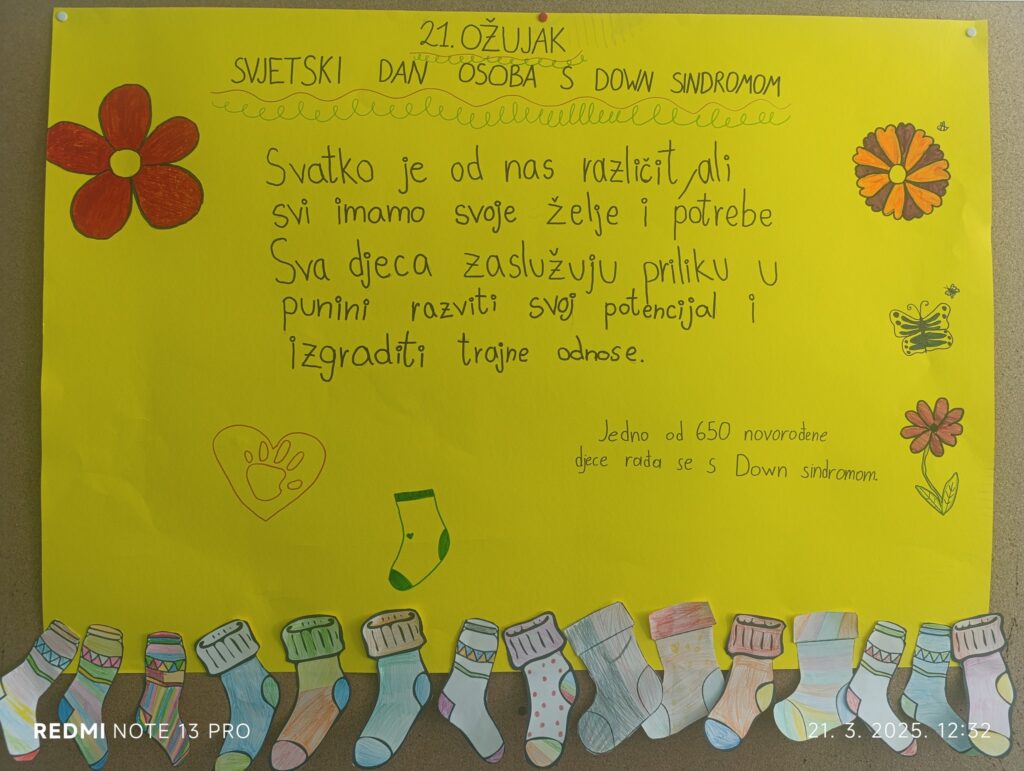 21. OŽUJAK
SVJETSKI DAN OSOBA S DOWN SINDROMOM
Svatko je od nas različit, ali
svi imamo svoje želje i potrebe
Sva djeca zaslužuju priliku u
punini razviti svoj potencijal i
izgraditi trajne odnose.
Jedno od 650 novorođene
djece rađa se s Down sindromom.
REDMI NOTE 13 PRO
21. 3. 2025. 12:32